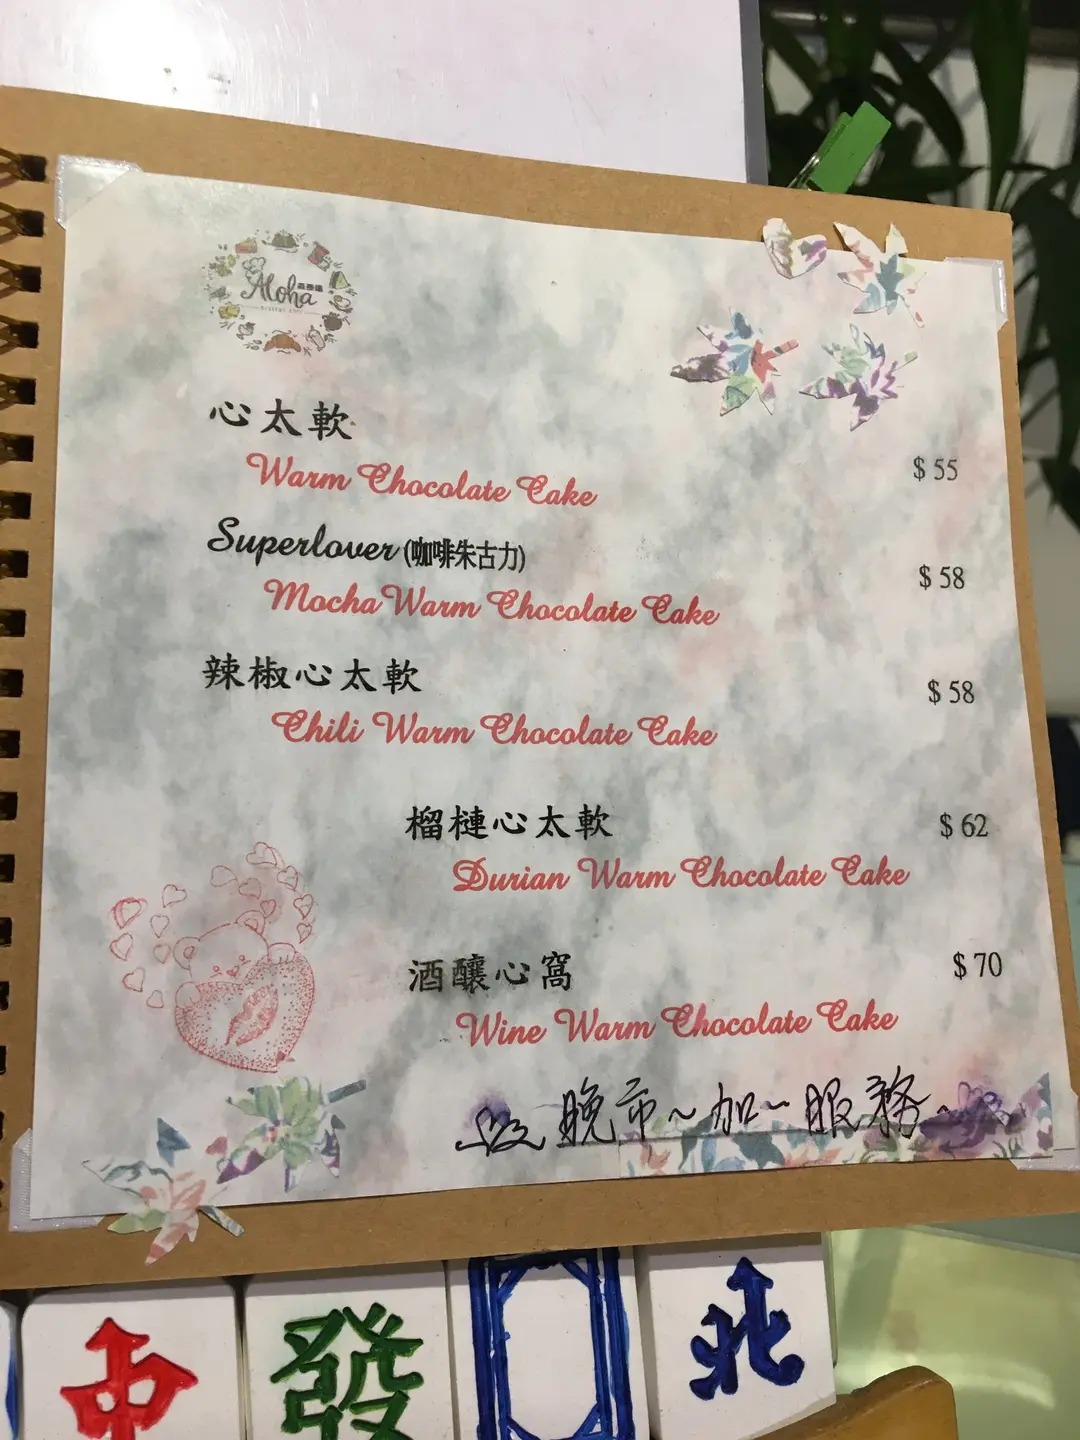 Aloha
心太軟
Warm Chocolate Cake
$ 55
Superlover (咖啡朱古力)
$ 58
Mocha Warm Chocolate Cake
辣椒心太軟
$ 58
Chili Warm Chocolate Cake
榴槤心太軟
$ 62
Durian Warm Chocolate Cake
酒釀心窩
$ 70
Wine Warm Chocolate Cake
晚市~加一服務
中 發 北